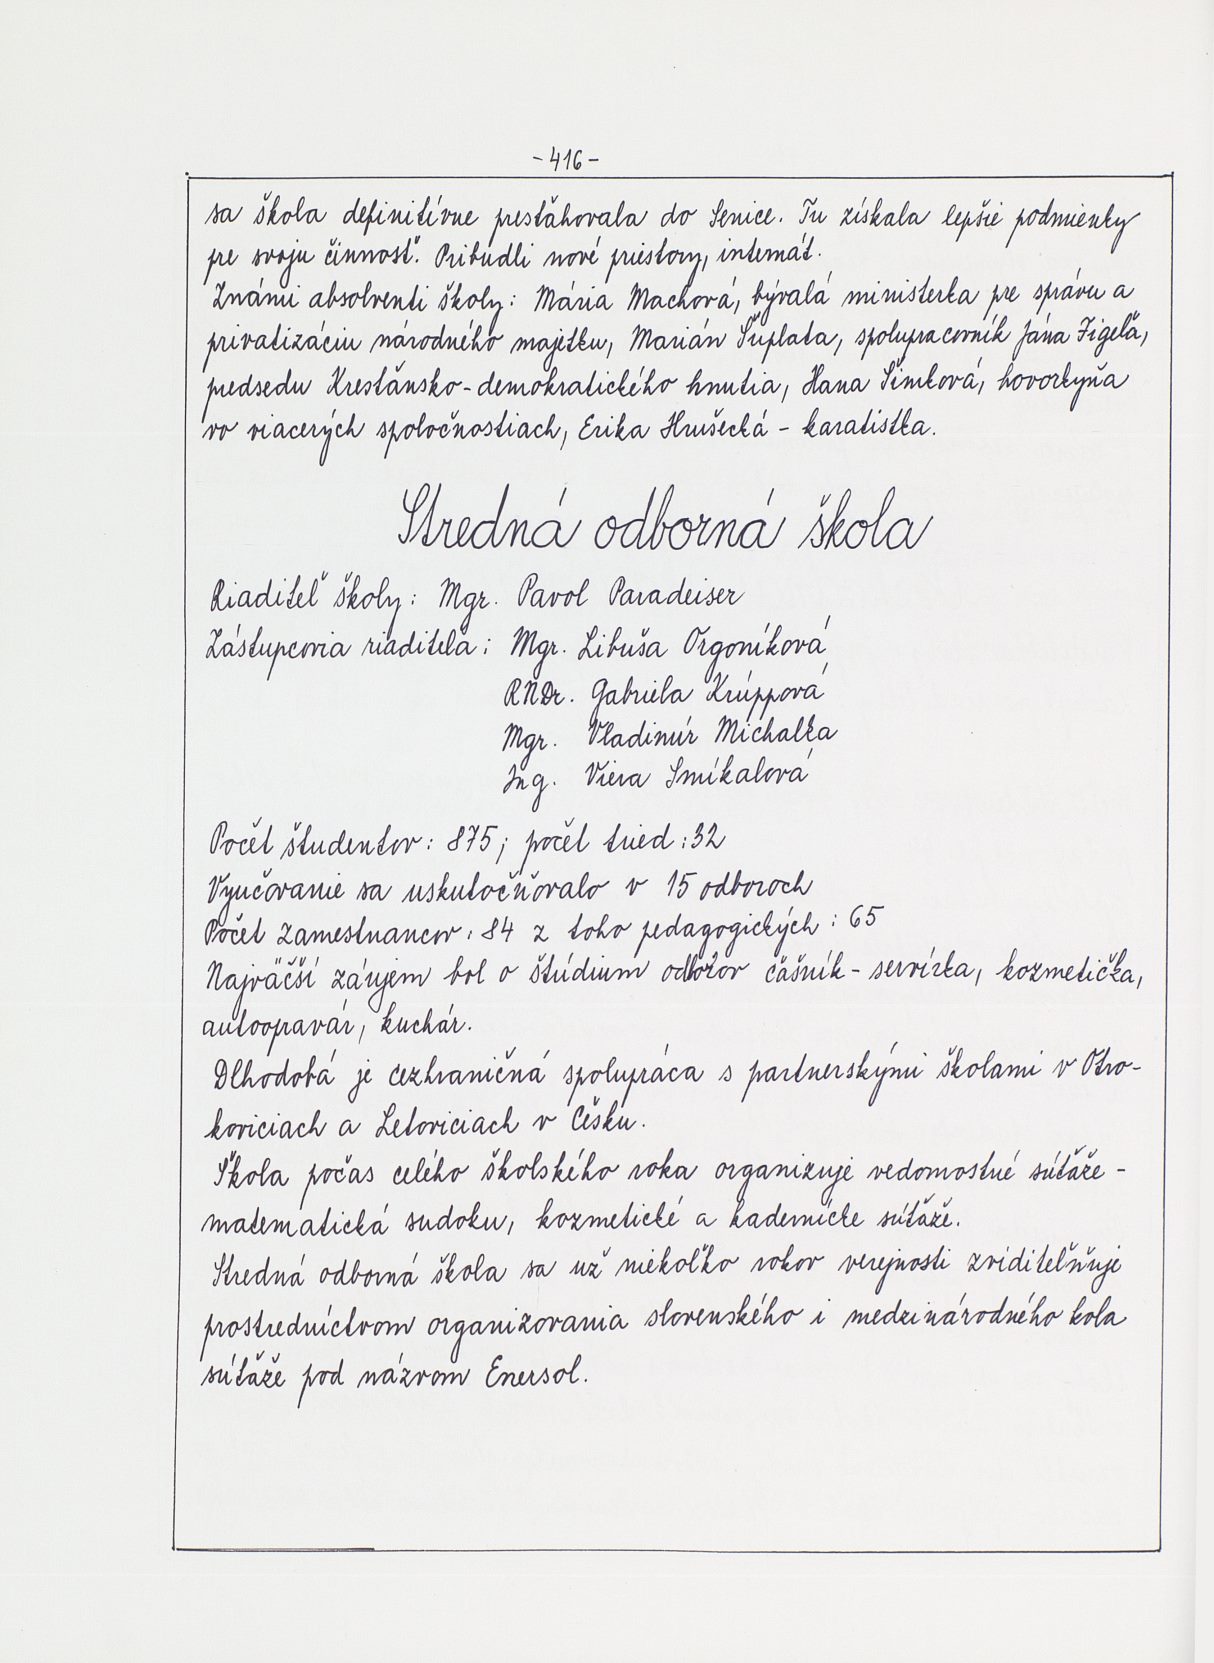 -416-
sa škola definitívne presťahovala do Senice. Tu získala lepšie podmienky
pre svoju činnosť. Pribudli nové priestory, internát.
Známi absolventi školy: Mária Machová, bývalá ministerka pre správu a
privatizáciu národného majetku, Marián Šuplata, spolupracovník Jána Figeľa,
predsedu Kresťansko-demokratického hnutia, Hana Šimková, hovorkyňa
vo viacerých spoločnostiach, Erika Hrušecká - karatistka.
Stredná odborná škola
Riaditeľ školy: Mgr. Pavol Paradeiser
Zástupcovia riaditeľa: Mgr. Libuša Orgoníková
RNDr. Gabriela Krúppová
Mgr. Vladimír Michalka
Ing. Viera Smíkalová
Počet študentov: 875; počet tried: 32
Vyučovanie sa uskutočňovalo v 15 odboroch
Počet zamestnancov: 84 z toho pedagogických: 65
Najväčší záujem bol o štúdium odborov čašník - servírka, kozmetička,
autoopravár, kuchár.
Dlhodobá je cezhraničná spolupráca s partnerskými školami v Otro-
koviciach a Letoviciach v Česku.
Škola počas celého školského roka organizuje vedomostné súťaže -
matematická sudoku, kozmetické a kadernícke súťaže.
Stredná odborná škola sa už niekoľko rokov verejnosti zviditeľňuje
prostredníctvom organizovania slovenského i medzinárodného kola
súťaže pod názvom Enersol.